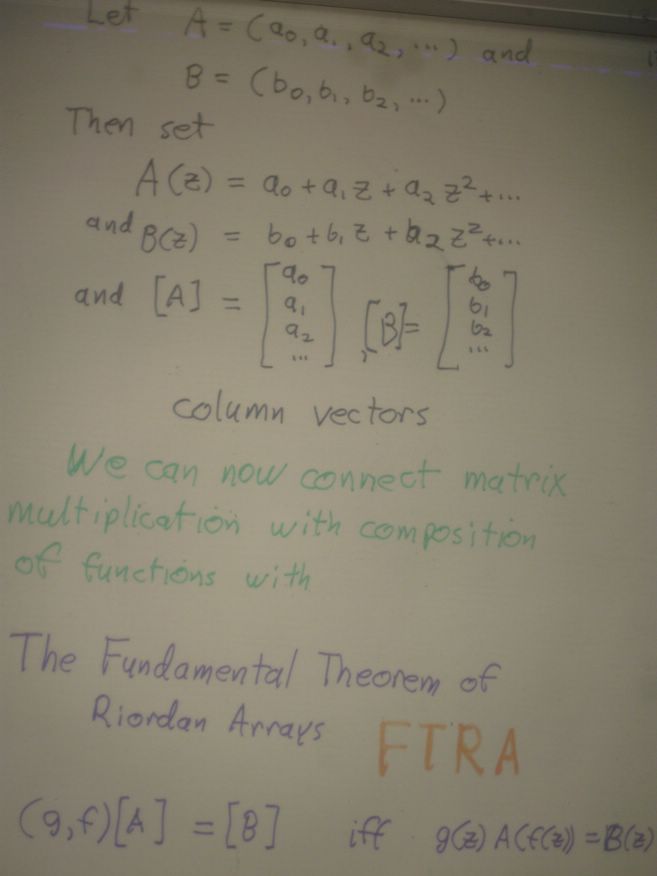 Let A = (a₀, a₁, a₂, ...) and
B = (b₀, b₁, b₂, ...)
Then set
A(z) = a₀ + a₁z + a₂z² + ...
and B(z) = b₀ + b₁z + b₂z² + ...
and [A] = [a₀ a₁ a₂ ...], [B] = [b₀ b₁ b₂ ...]
column vectors
We can now connect matrix
multiplication with composition
of functions with
The Fundamental Theorem of
Riordan Arrays FTRA
(g,f)[A] = [B] iff g(z)A(f(z)) = B(z)